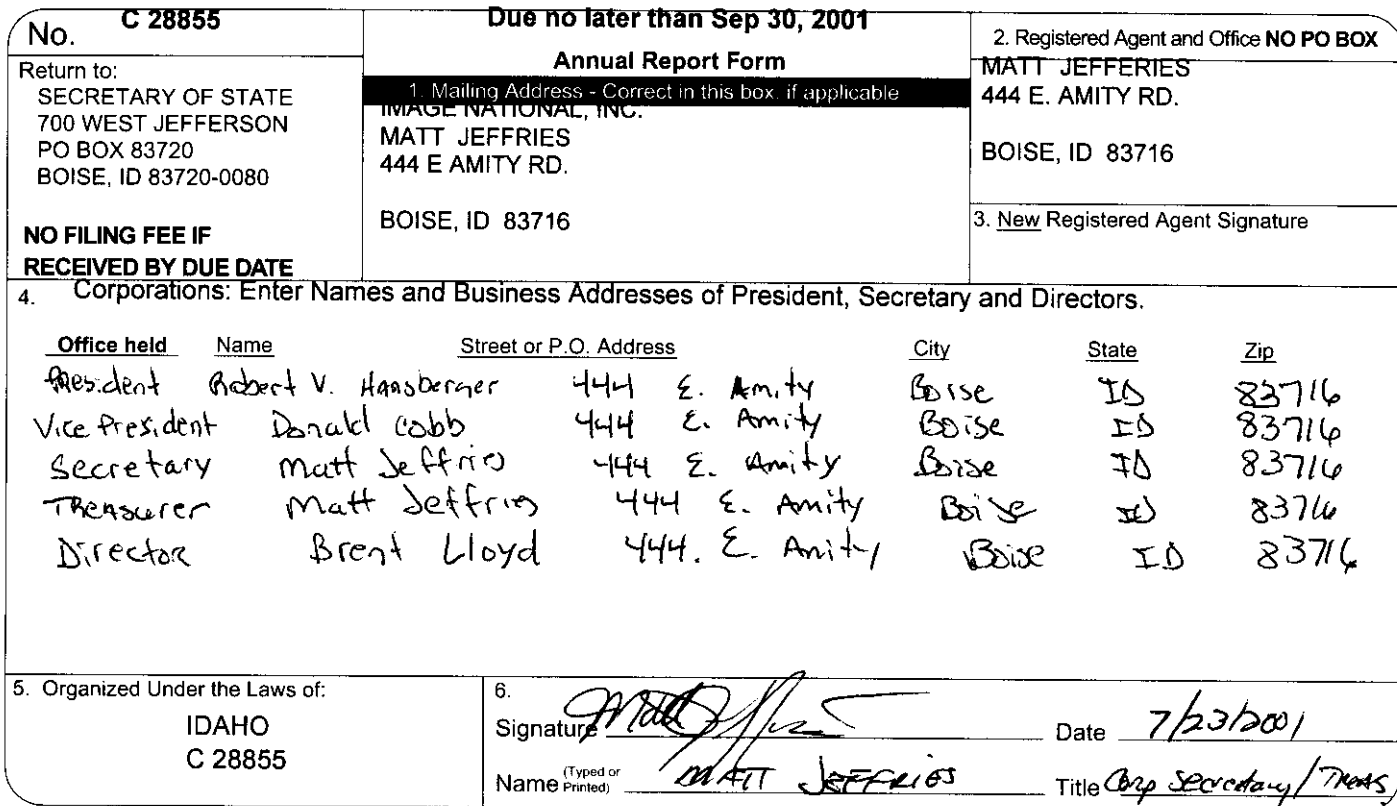 No. C 28855
Return to:
SECRETARY OF STATE
700 WEST JEFFERSON
PO BOX 83720
BOISE, ID 83720-0080
NO FILING FEE IF
RECEIVED BY DUE DATE
Due no later than Sep 30, 2001
Annual Report Form
1. Mailing Address - Correct in this box, if applicable
IMAGE NATIONAL, INC.
MATT JEFFRIES
444 E AMITY RD.
BOISE, ID 83716
2. Registered Agent and Office NO PO BOX
MATT JEFFERIES
444 E. AMITY RD.
BOISE, ID 83716
3. New Registered Agent Signature
4. Corporations: Enter Names and Business Addresses of President, Secretary and Directors.
Office held Name Street or P.O. Address City State Zip
President Robert V. Hansberger 444 E. Amity Boise ID 83716
Vice President Donald Cobb 444 E. Amity Boise ID 83716
Secretary Matt Jeffries 444 E. Amity Boise ID 83716
Treasurer Matt Jeffries 444 E. Amity Boise ID 83716
Director Brent Lloyd 444. E. Amity Boise ID 83716
5. Organized Under the Laws of:
IDAHO
C 28855
6.
Signature Date 7/23/2001
Name (Typed or Printed) MATT JEFFRIES Title Corp Secretary / Treas